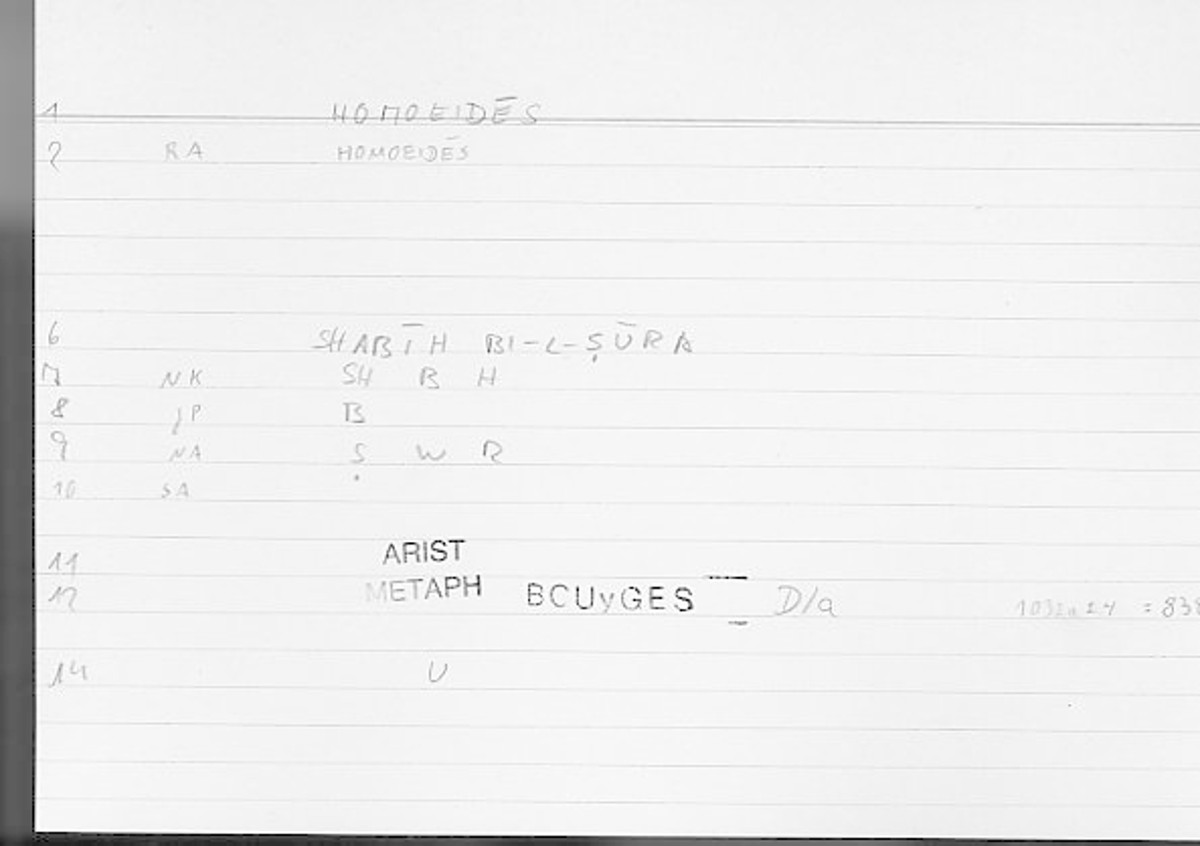 1 HOMOEIDĒS
2 RA HOMOEIDĒS
6 SHABĪH BI-L-ṢŪRA
7 NK SH B H
8 JP B
9 NA Ṣ W R
10 SA
11 ARIST
12 METAPH BCUyGES D/a 1032a24 = 838
14 U